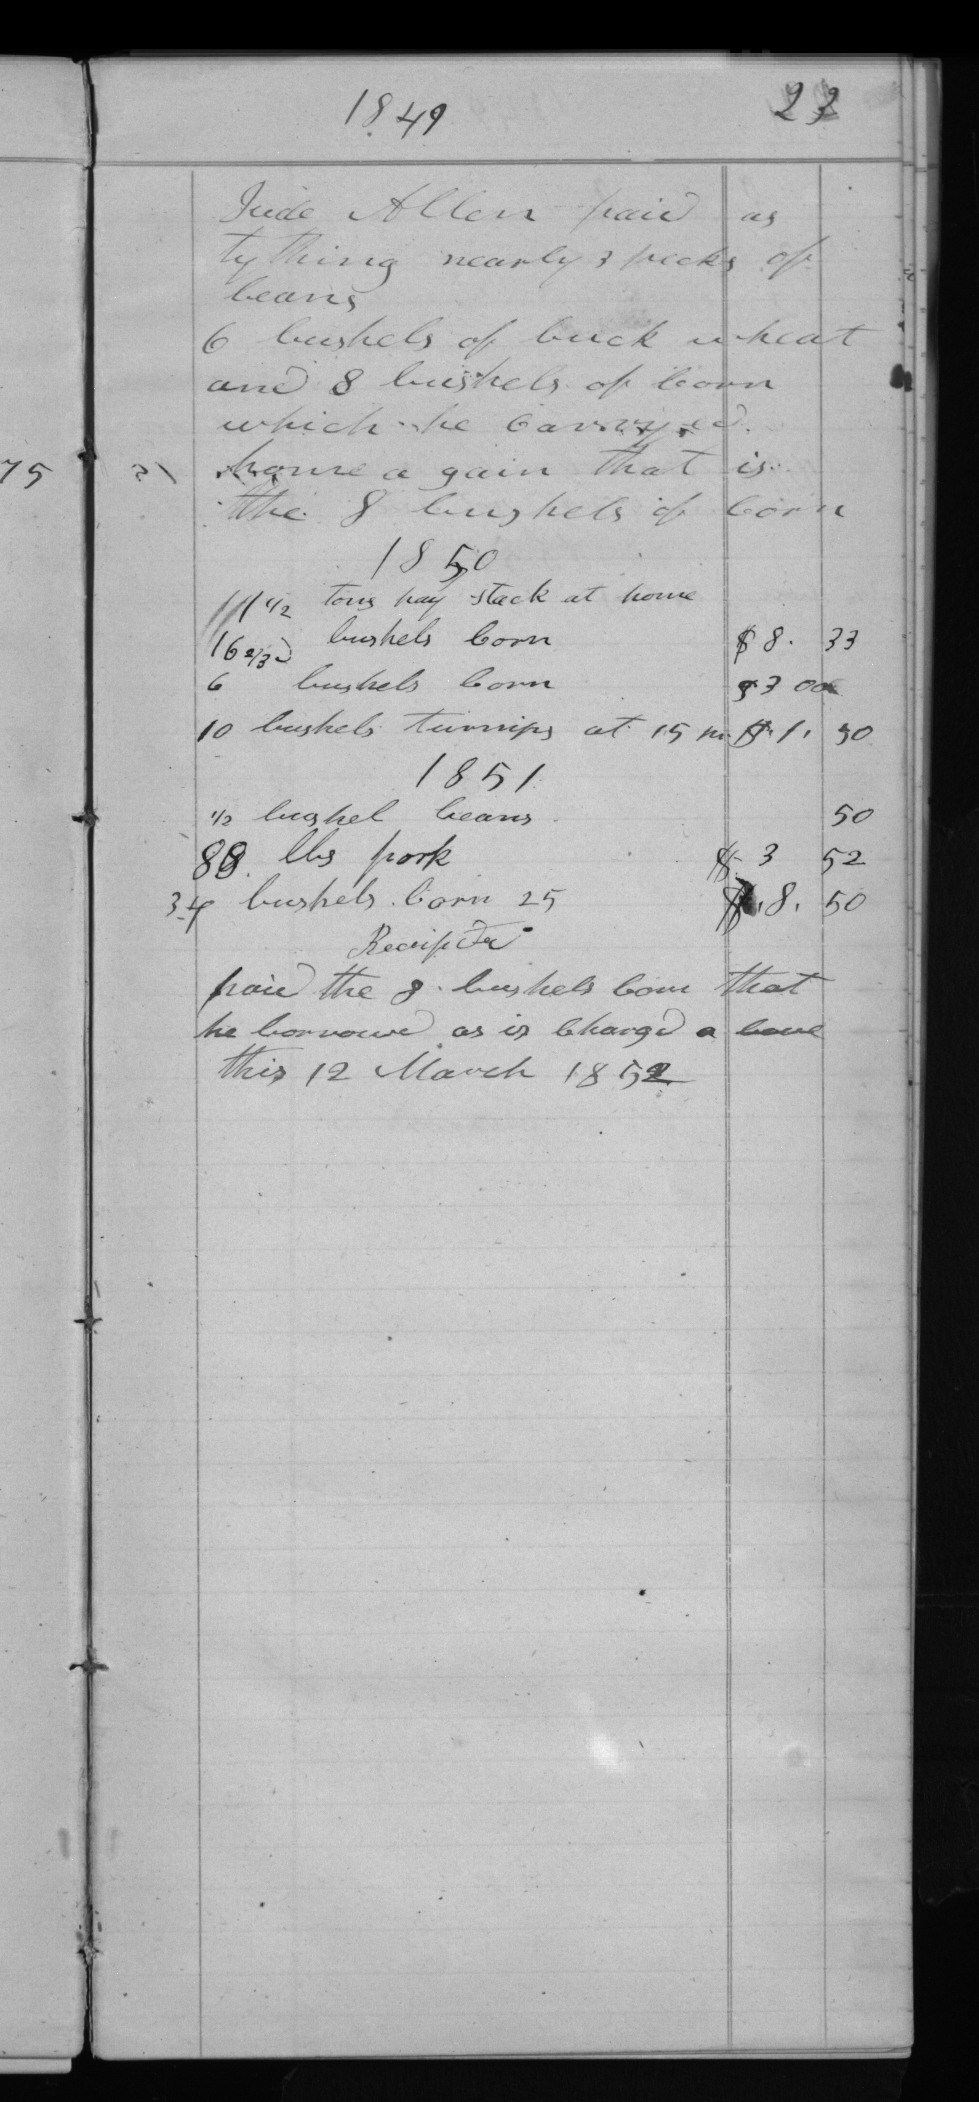 75
1849 22
Jude Allen paid as
tything nearly 3 pecks of
beans
6 bushels of buck wheat
and 8 bushels of corn
which he carryed
home a gain that is
the 8 bushels of corn
1850
1 1/2 tons hay stack at home
16 2/3d bushels corn $8. 33
6 bushels corn $3 00
10 bushels turnips at 15 $1. 50
1851
1/2 bushel beans 50
88 lbs pork $ 3 52
34 bushels corn 25 $.8. 50
Receipted
paid the 8 bushels corn that
he borrowed as is charged a bove
this 12 March 1852